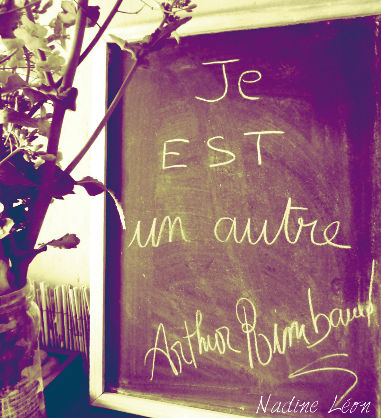 Je
EST
un autre
Arthur Rimbaud
Nadine Léon